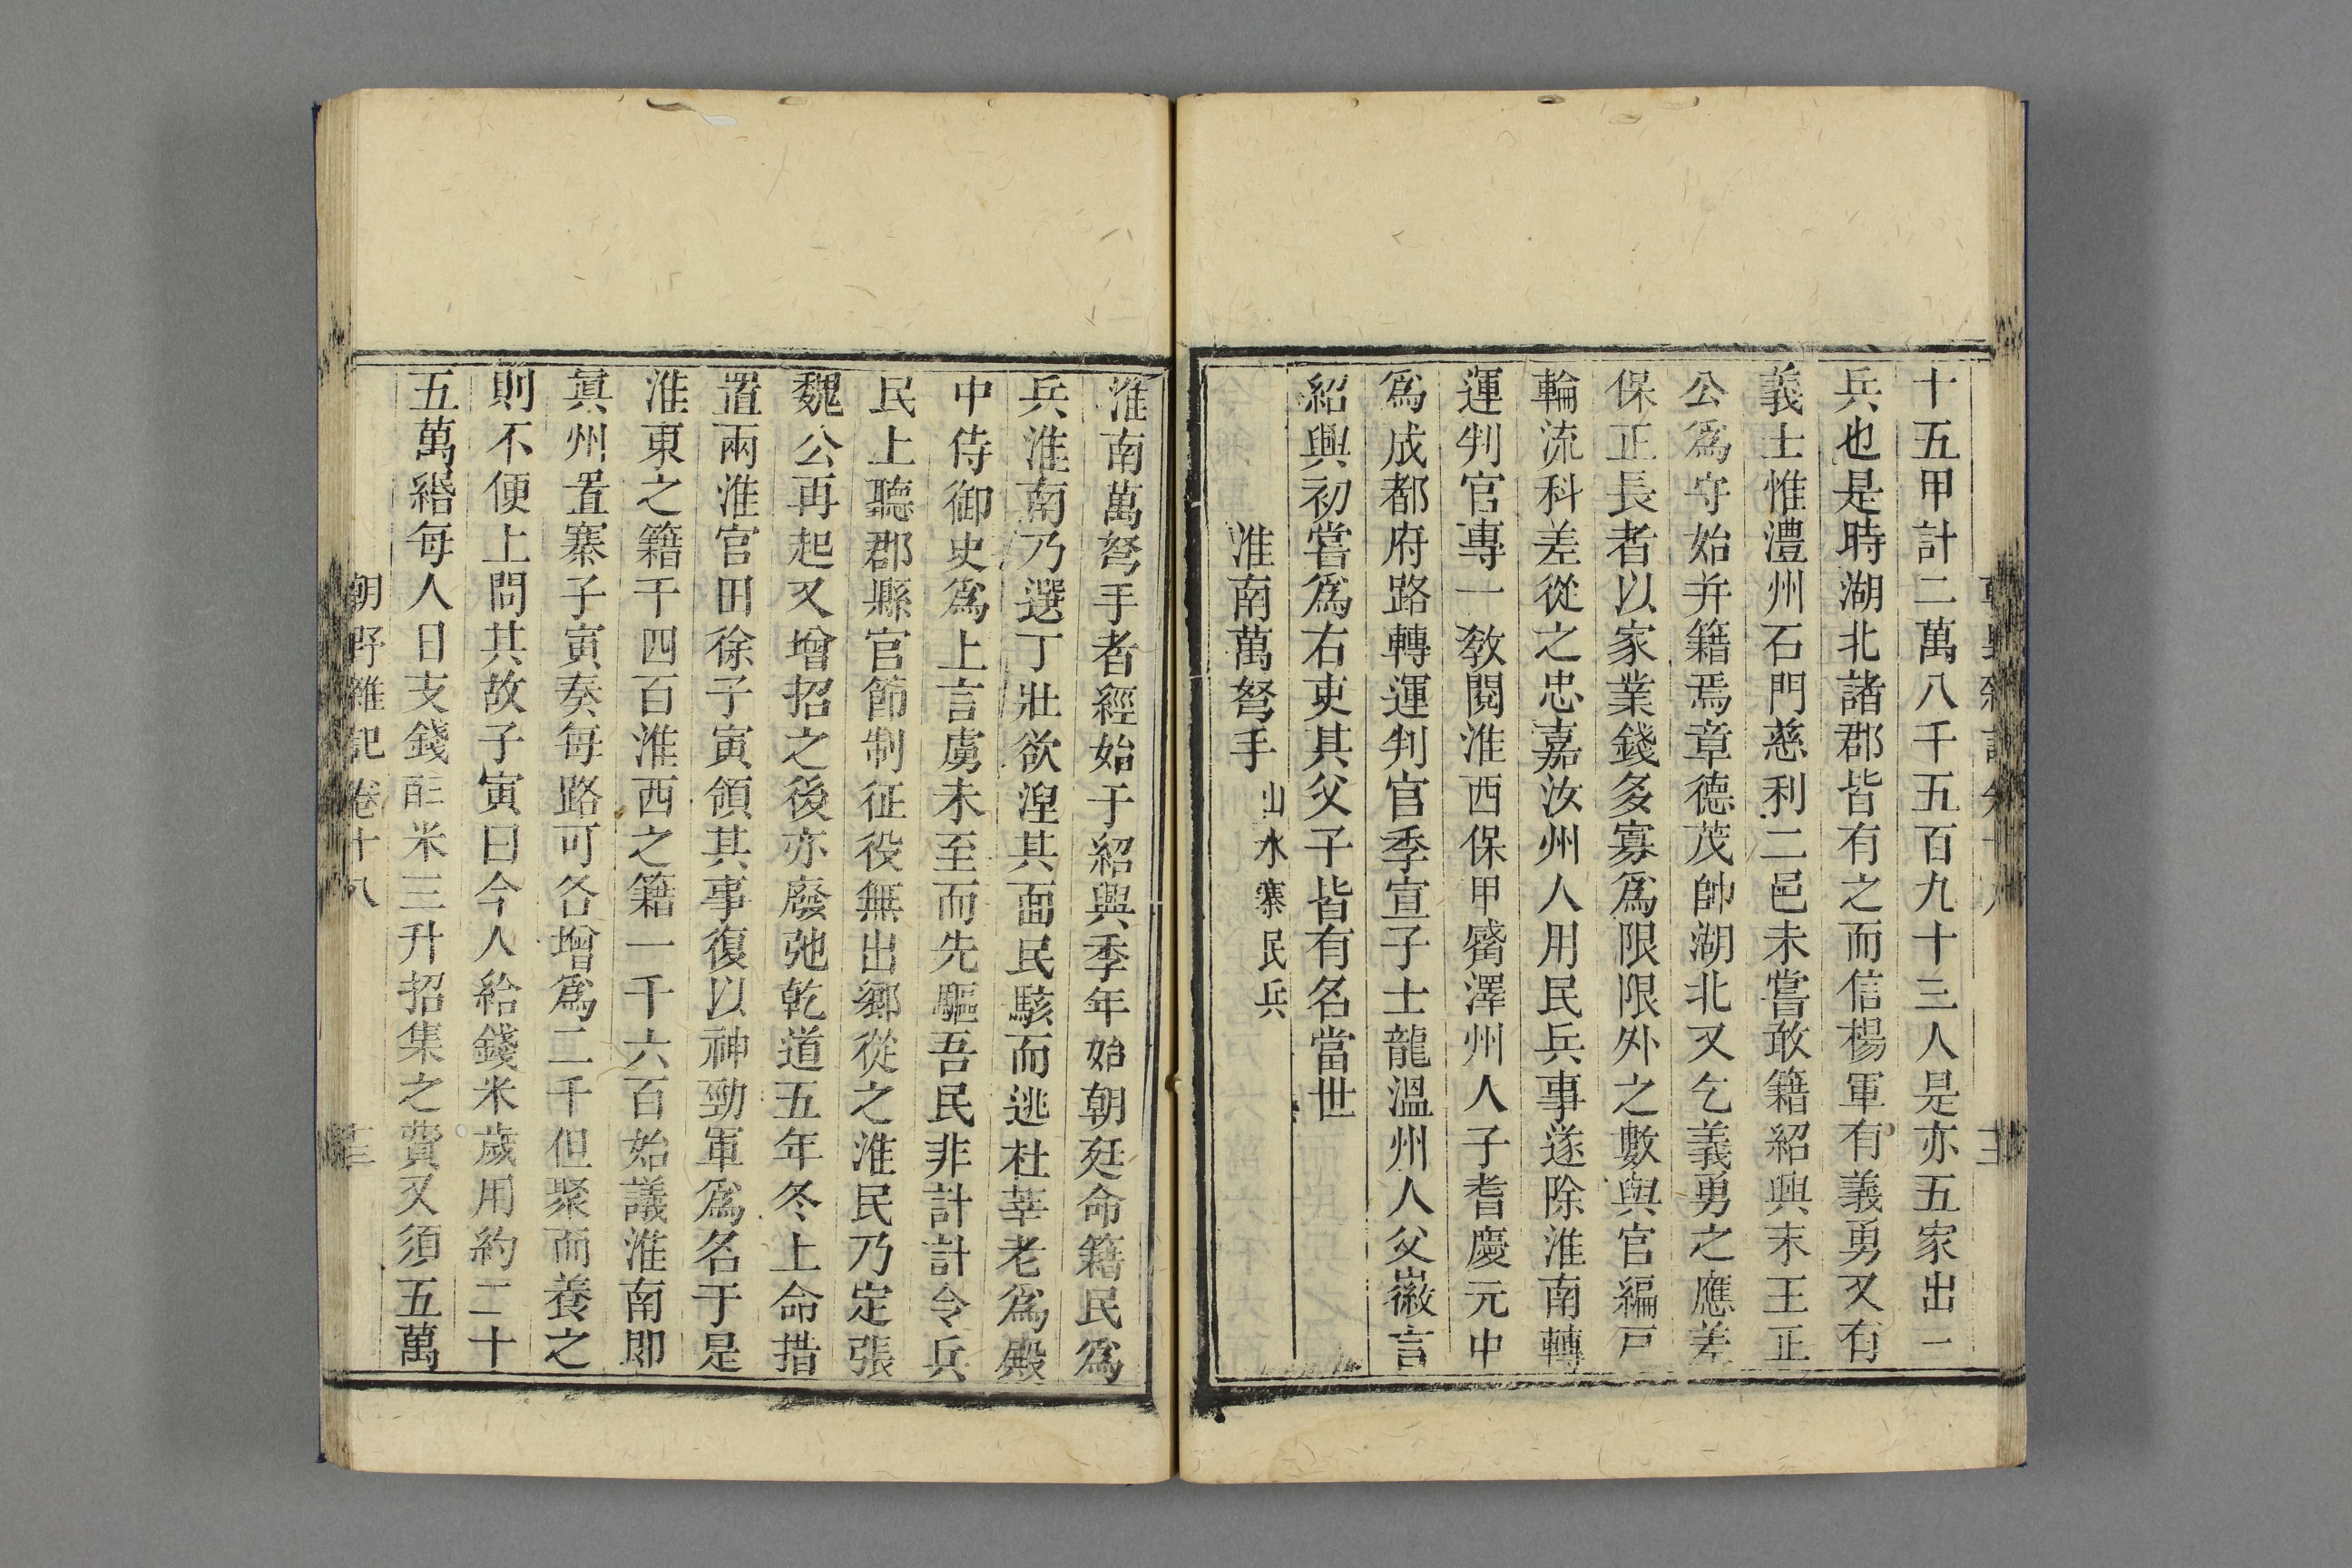 十五甲計二萬八千五百九十三人是亦五家出一
兵也是時湖北諸郡皆有之而信楊軍有義勇又有
義士惟澧州石門慈利二邑未嘗敢籍紹興末王正
公爲守始并籍焉章德茂帥湖北又乞義勇之應差
保正長者以家業錢多寡爲限限外之數與官編戸
輪流科差從之忠嘉汝州人用民兵事遂除淮南轉
運判官專一敎閱淮西保甲奫澤州人子耆慶元中
爲成都府路轉運判官季宣子士龍溫州人父徽言
紹興初嘗爲右吏其父子皆有名當世
淮南萬弩手 山水寨民兵
淮南萬弩手者經始于紹興季年始朝廷命籍民爲
兵淮南乃選丁壯欲湼其面民駭而逃杜莘老爲殿
中侍御史爲上言虜未至而先驅吾民非計計令兵
民上聽郡縣官節制征役無出鄉從之淮民乃定張
魏公再起又增招之後亦廢弛乾道五年冬上命措
置兩淮官田徐子寅領其事復以神勁軍爲名于是
淮東之籍千四百淮西之籍一千六百始議淮南即
眞州置寨子寅奏每路可各增爲二千但聚而養之
則不便上問其故子寅曰今人給錢米歲用約二十
五萬緡每人日支錢米三升招集之費又須五萬
朝野雜記卷十八